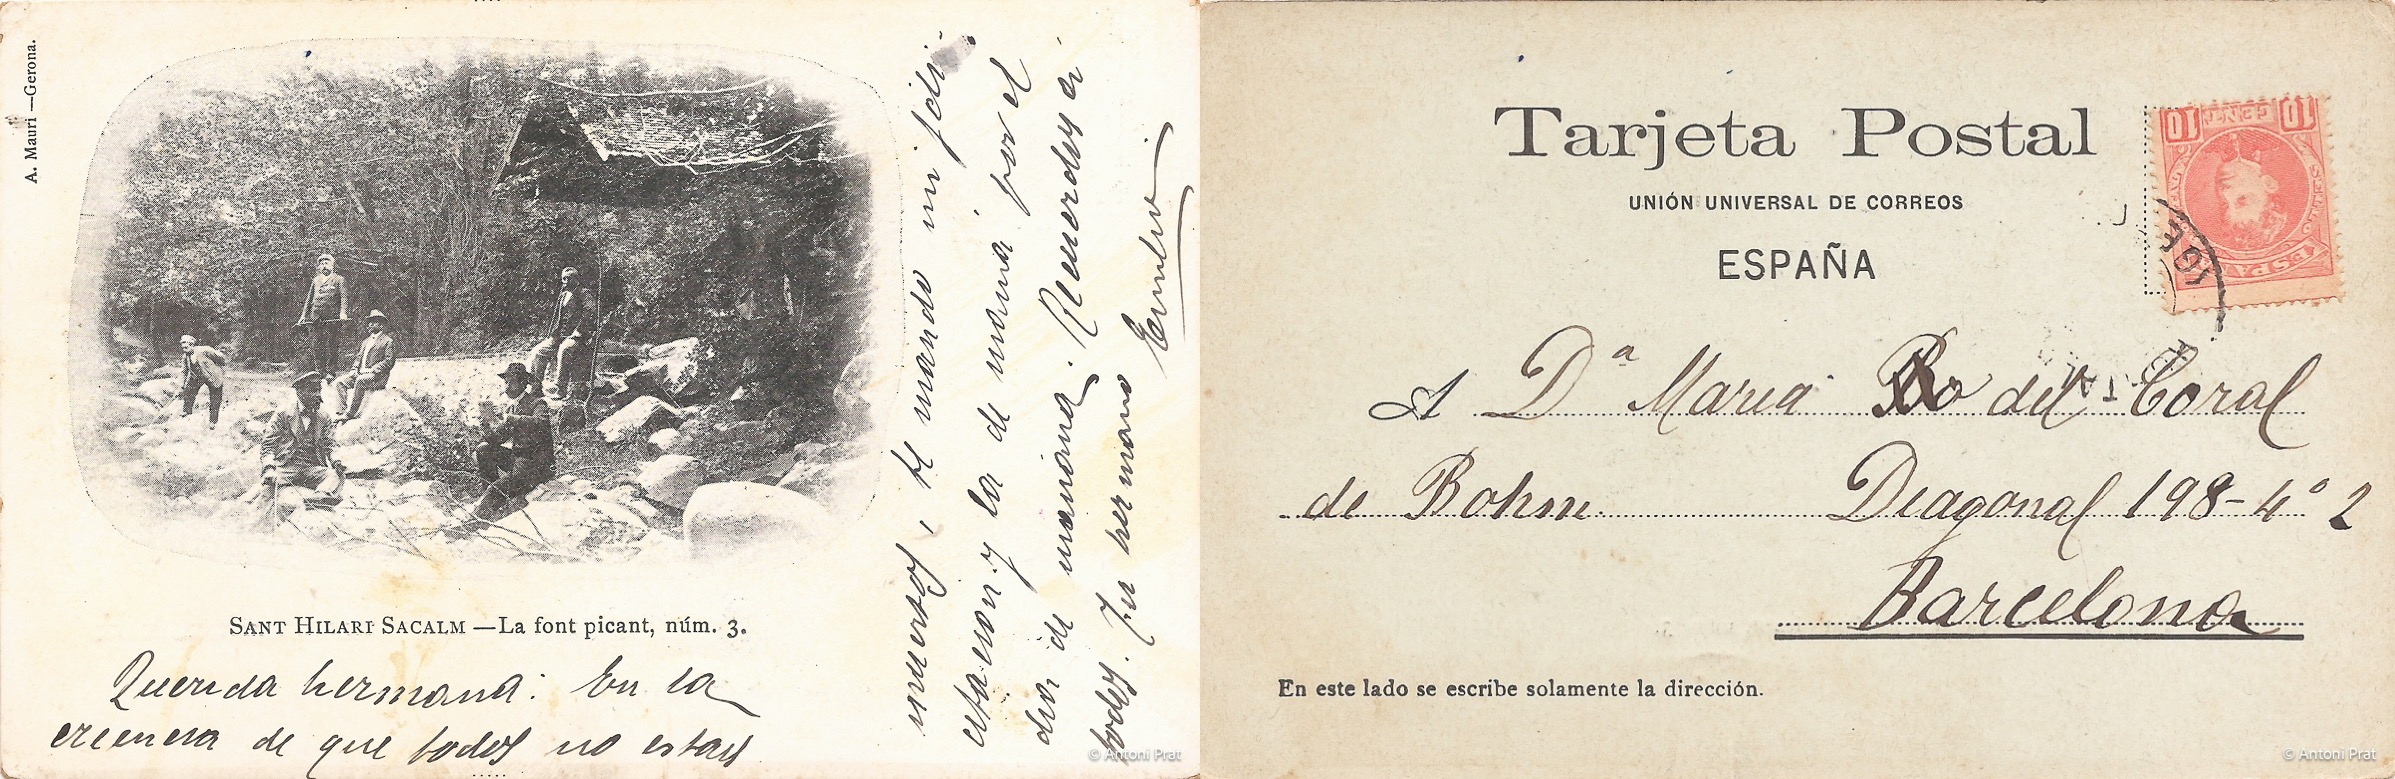 A. Mauri—Gerona.
SANT HILARI SACALM —La font picant, núm. 3.
Querida hermana: En la
creencia de que todos no estais
muertos, te mando mi feli-
tacion y la de mamá por el
dia de mañana. Recuerdos á
todos. Tu hermano
Emilio
© Antoni Prat
Tarjeta Postal
UNIÓN UNIVERSAL DE CORREOS
ESPAÑA
10 CENTS 10
ESPAÑA
A Dª Maria del Coral
de Bohm. Diagonal 198-4º 2
Barcelona
En este lado se escribe solamente la dirección.
© Antoni Prat